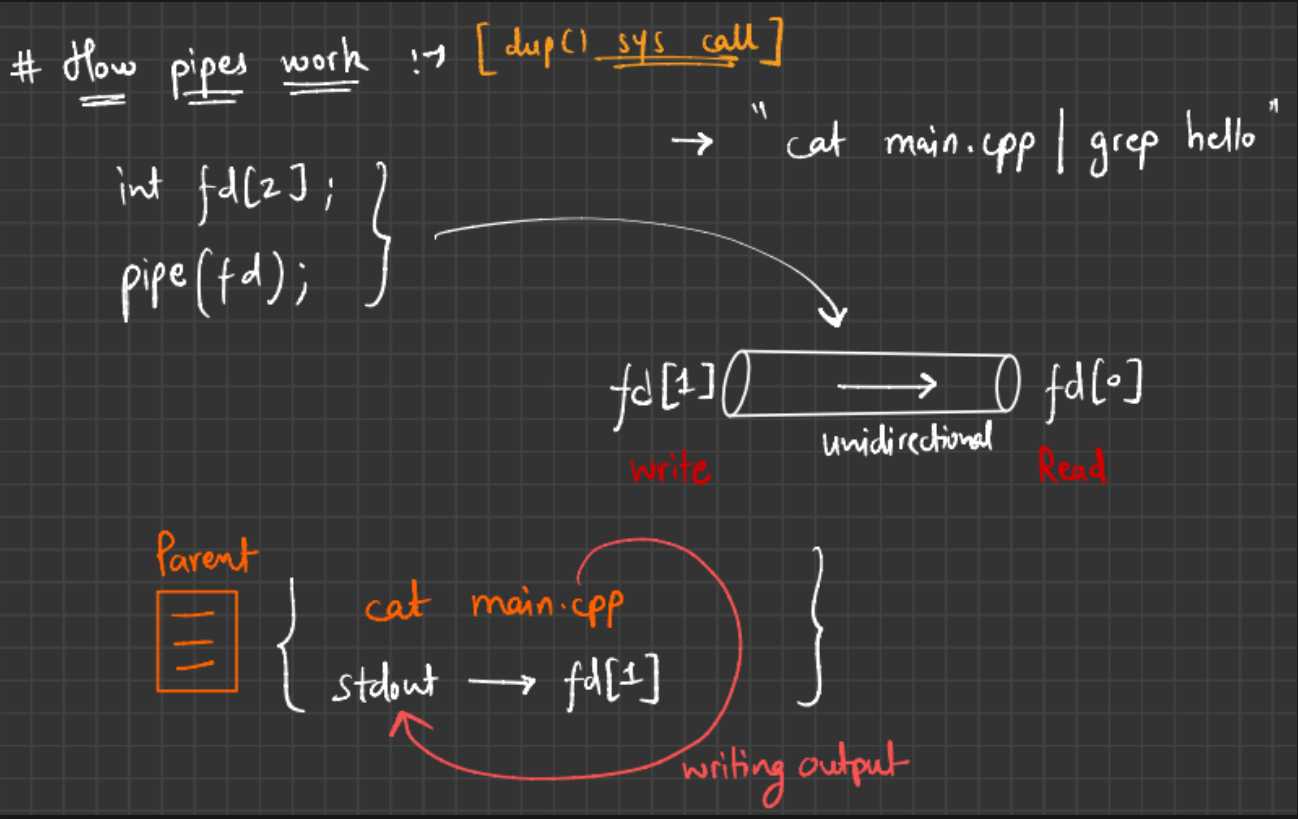 # How pipes work :→ [dup() sys call]
→ "cat main.cpp | grep hello"
int fd[2];
pipe(fd);
fd[1] → fd[0]
unidirectional
write Read
Parent
cat main.cpp
stdout → fd[1]
writing output